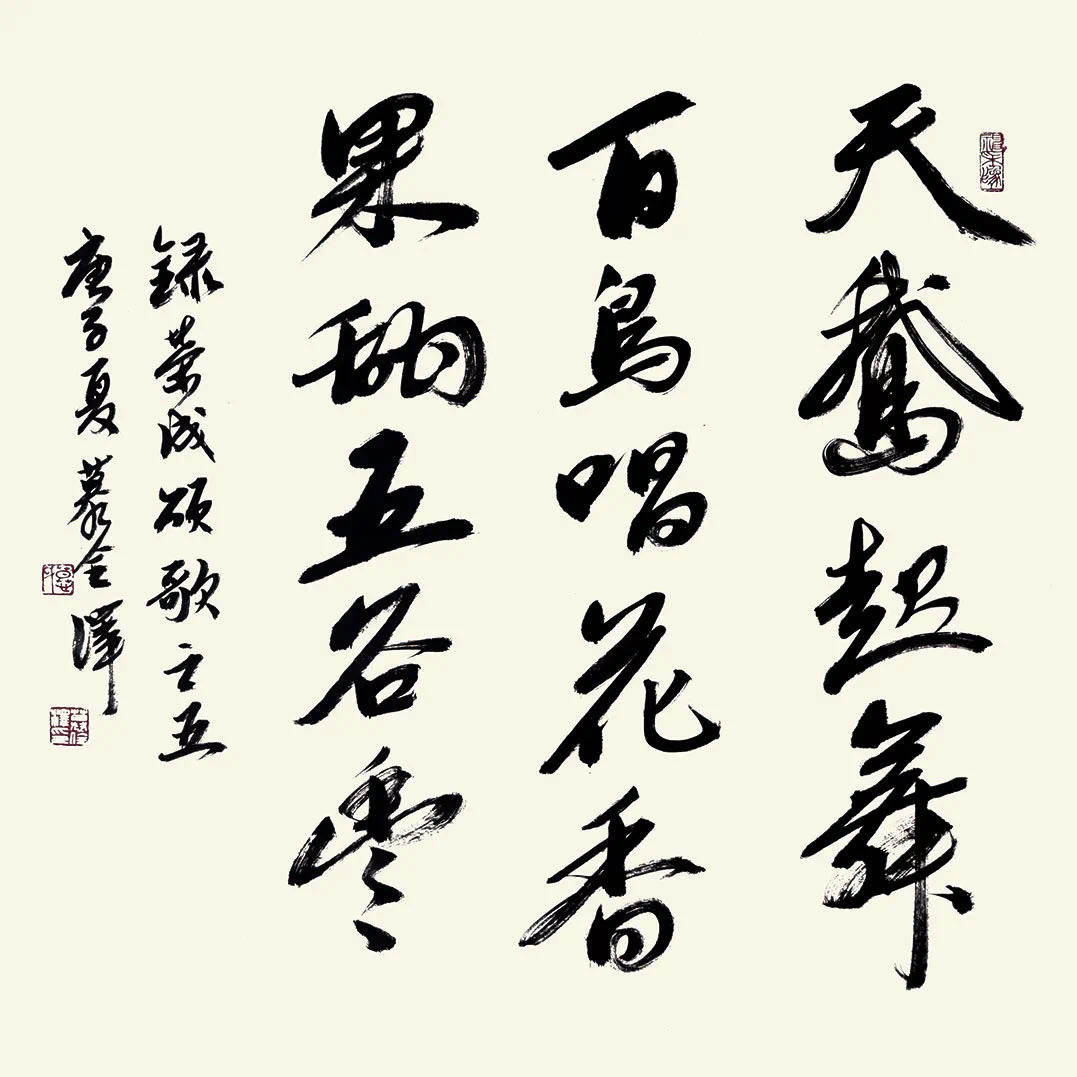 天鵞起舞
百鳥唱花香
果甜五谷豐
録榮成頌歌之五
庚子夏慕全澤